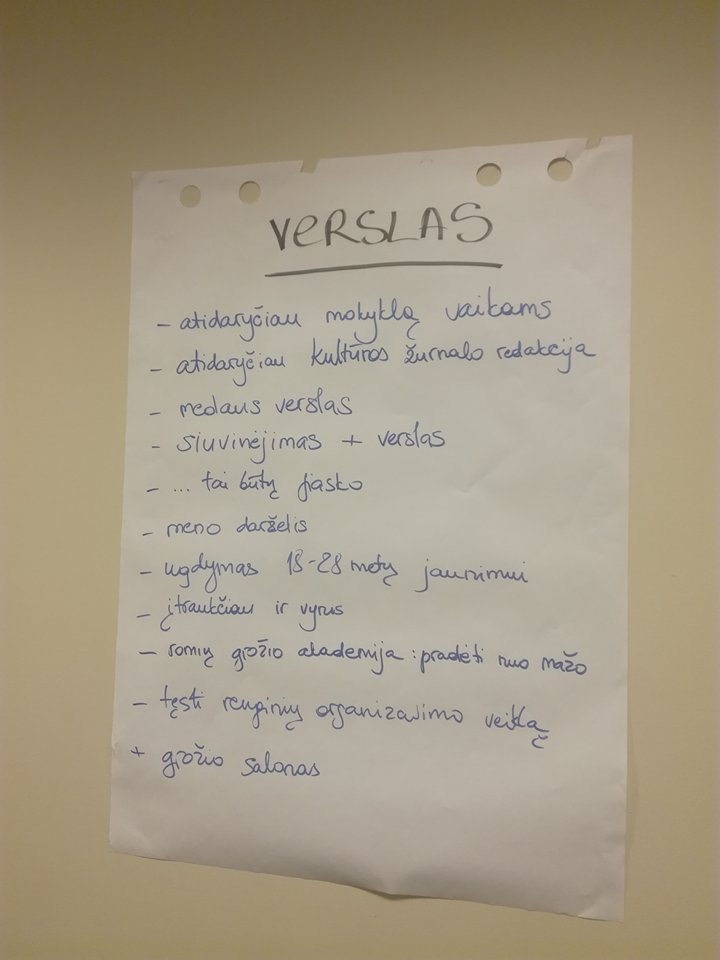 VERSLAS
- atidaryčiau mokyklą vaikams
- atidaryčiau kultūros žurnalo redakcija
- medaus verslas
- siuvinėjimas + verslas
- ... tai būtų fiasko
- meno darželis
- ugdymas 18-28 metų jaunimui
- įtraukčiau ir vyrus
- romių grožio akademija : pradėti nuo mažo
- tęsti renginių organizavimo veiklą
+ grožio salonas